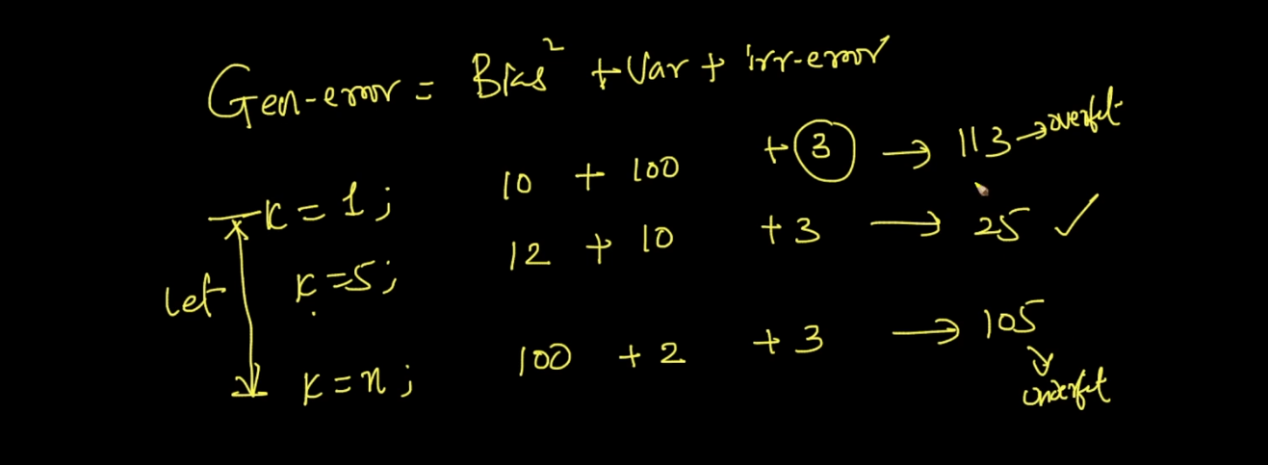 Gen-error = Bias² + Var + irr-error
k = 1; 10 + 100 + 3 → 113 → overfit
k = 5; 12 + 10 + 3 → 25 ✓
let
k = n; 100 + 2 + 3 → 105
underfit